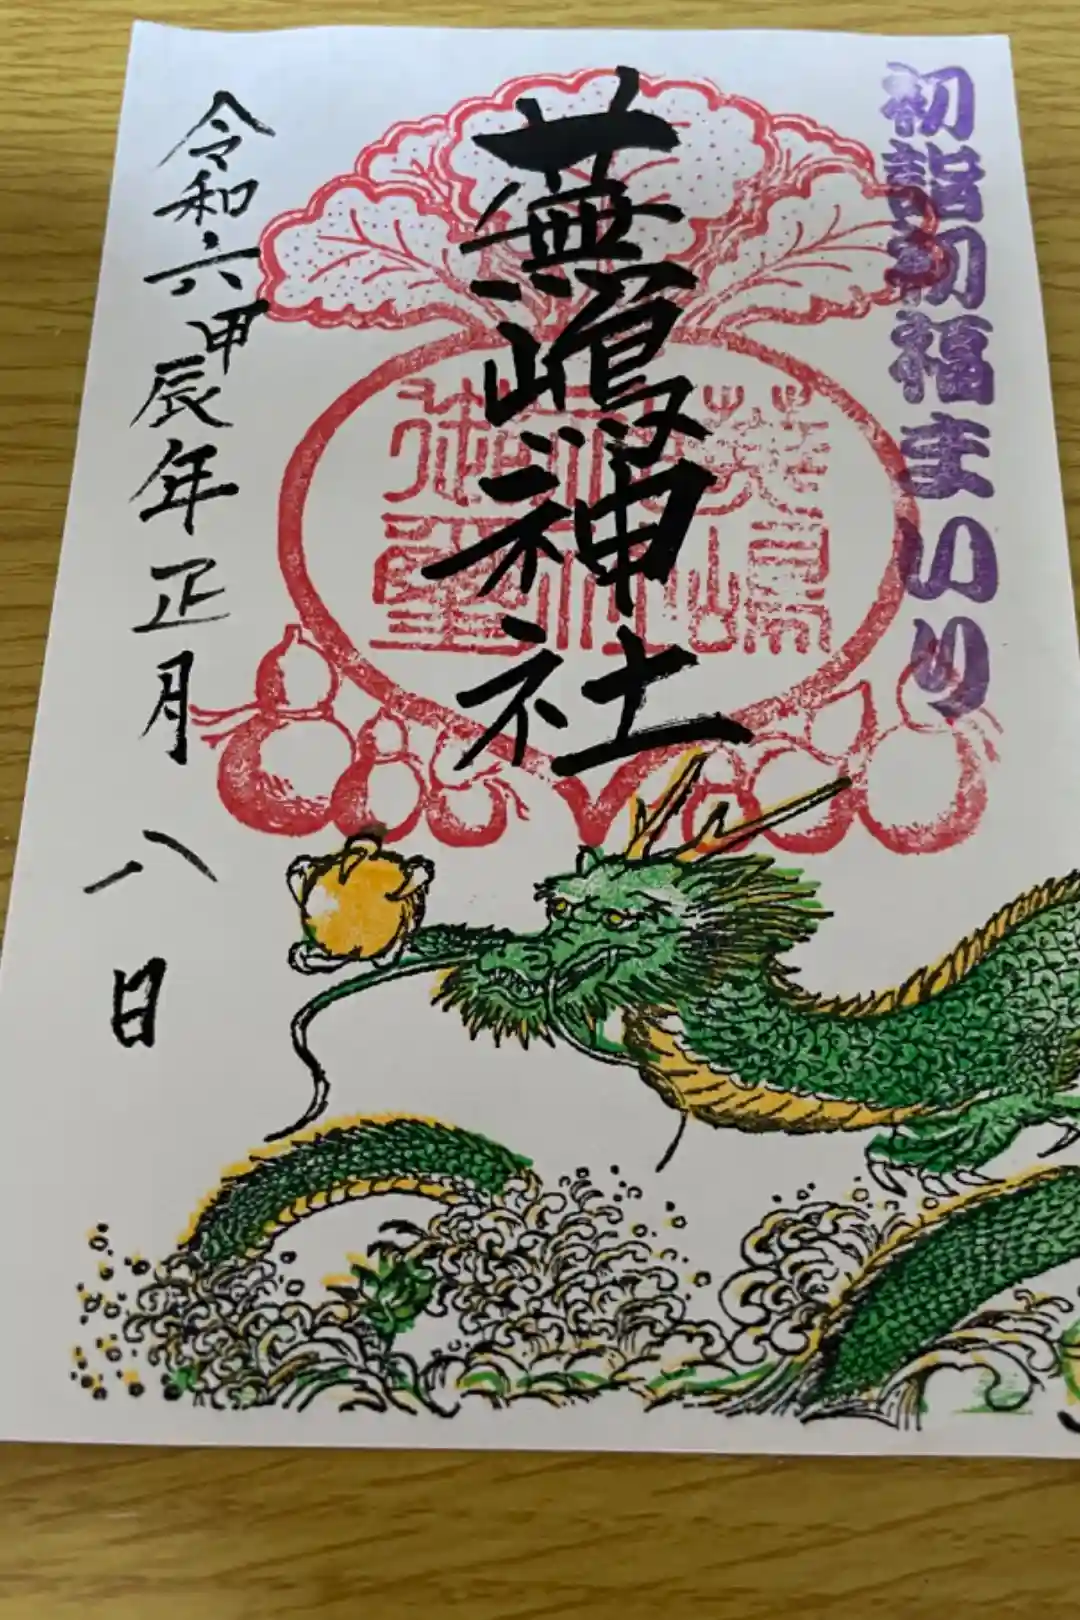 初詣初福まいり
蕪嶋神社
蕪嶋
神社
御璽
令和六甲辰年正月八日